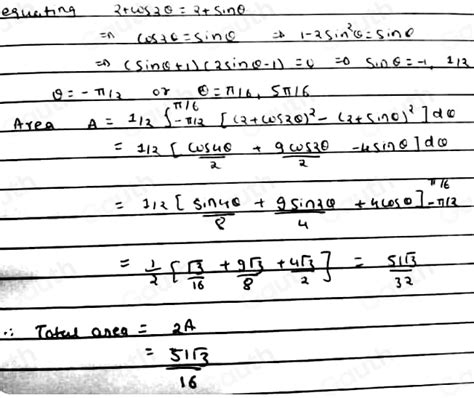 equating 2+cos2θ = 2+sinθ
=> cos2θ = sinθ => 1-2sin²θ = sinθ
=> (sinθ+1)(2sinθ-1) = 0 => sinθ = -1, 1/2
θ = -π/2 or θ = π/6, 5π/6
Area A = 1/2 ∫_{-π/2}^{π/6} [(2+cos2θ)² - (2+sinθ)²] dθ
= 1/2 [cos4θ/2 + 9cos2θ/2 - 4sinθ] dθ
= 1/2 [sin4θ/8 + 9sin2θ/4 + 4cosθ]_{-π/2}^{π/6}
= 1/2 [√3/16 + 9√3/8 + 4√3/2] = 51√3/32
∴ Total area = 2A
= 51√3/16